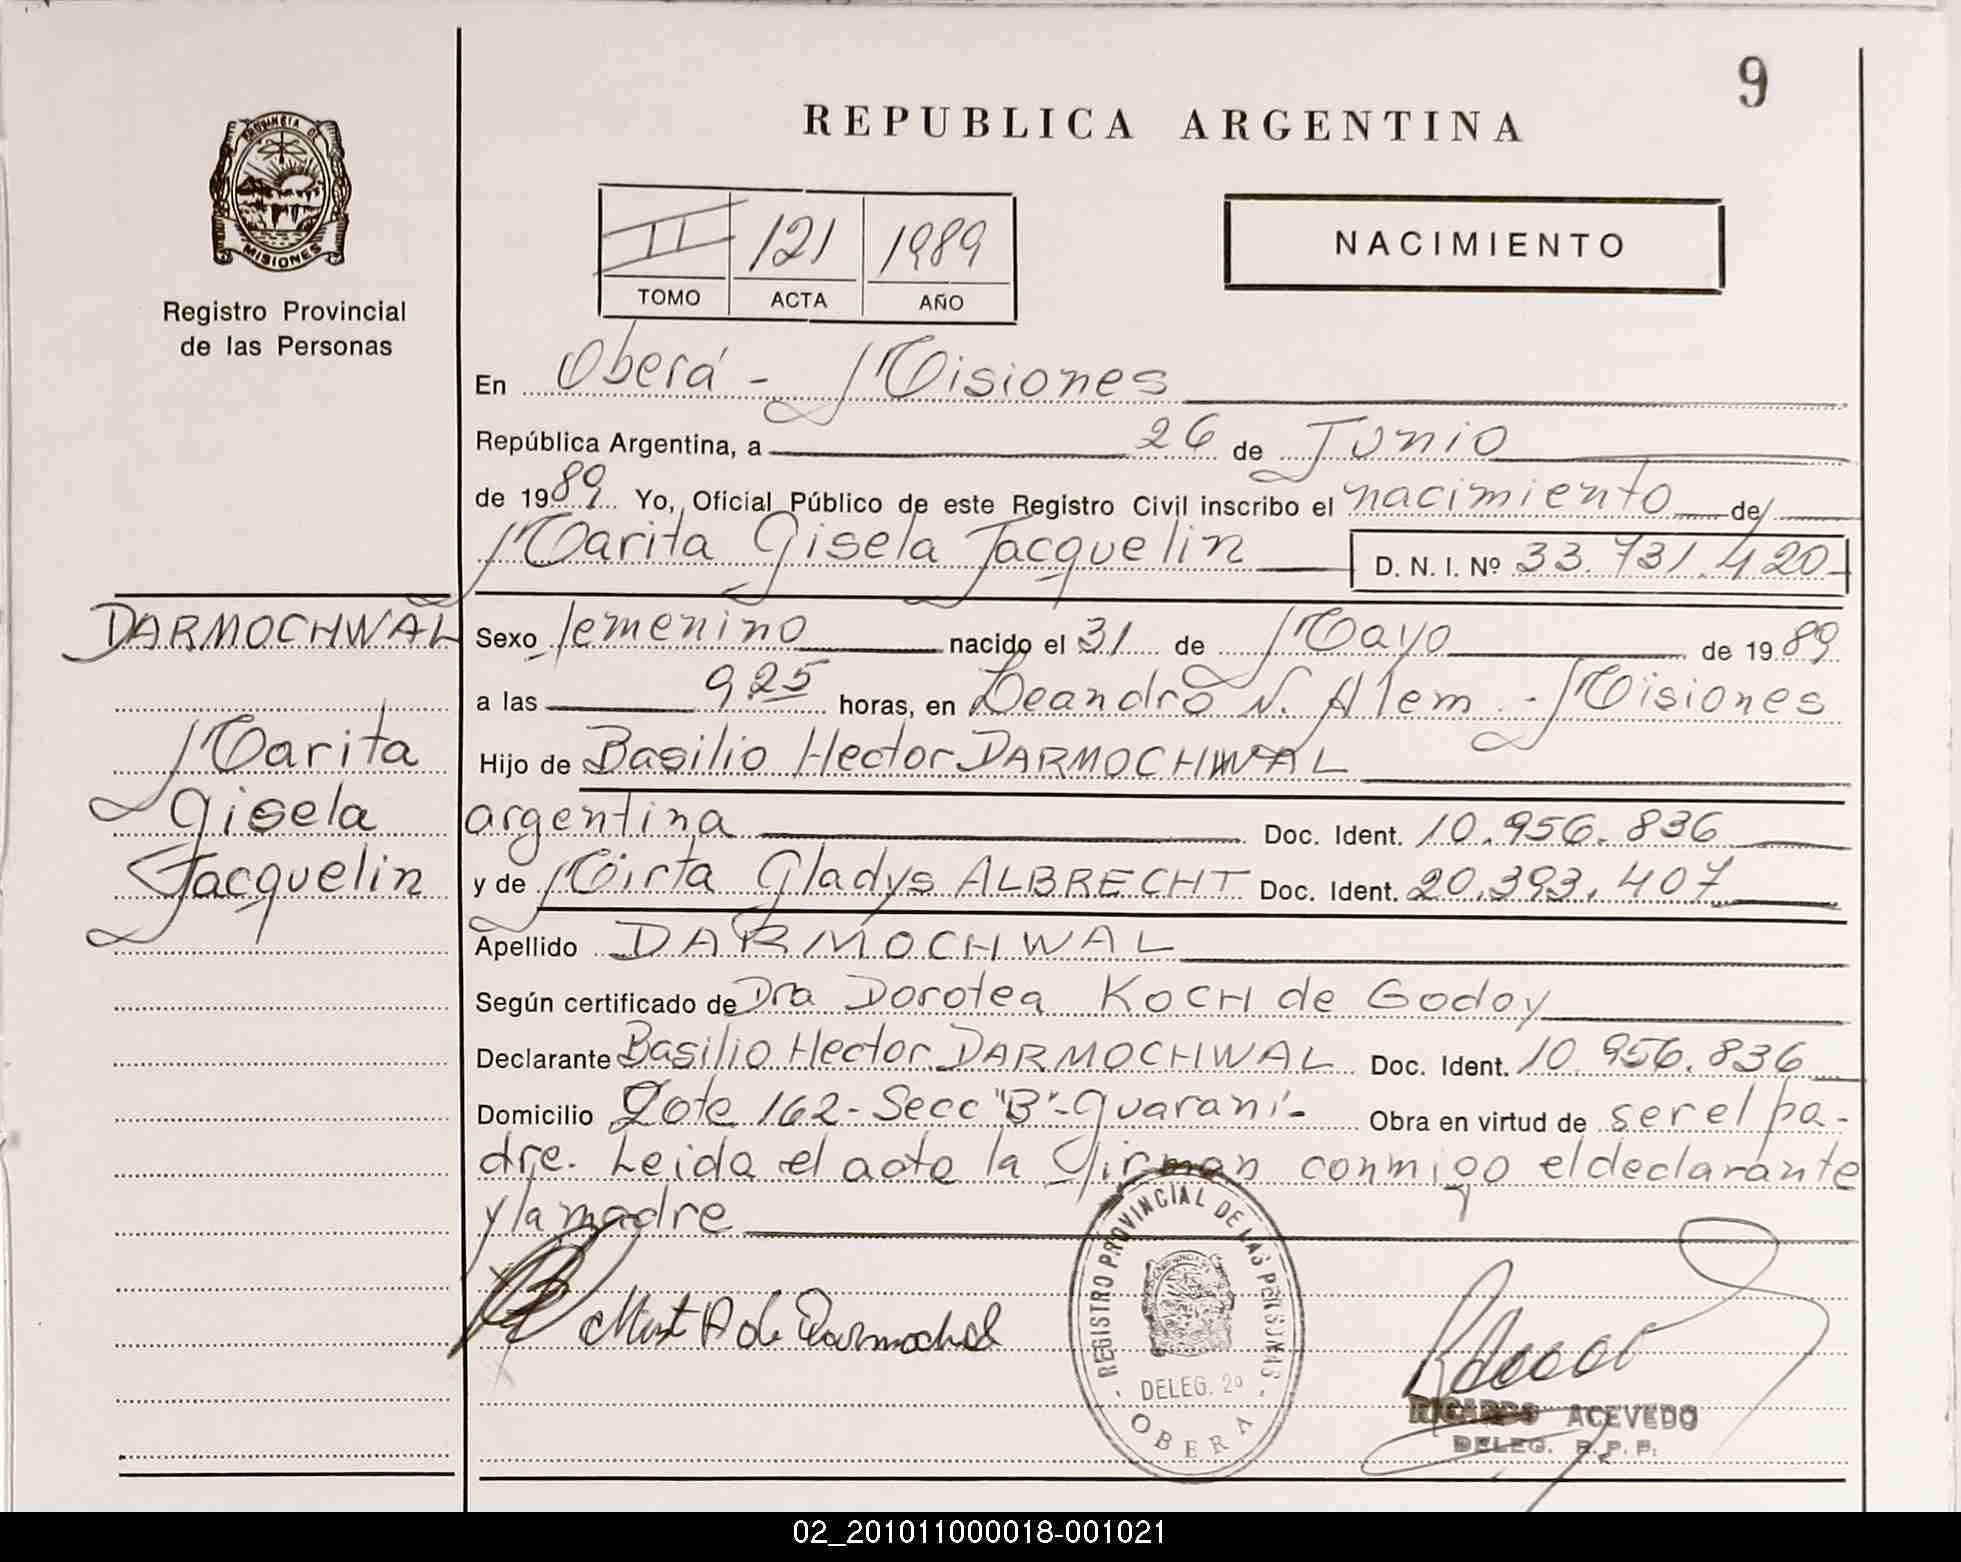 9
REPUBLICA ARGENTINA
PROVINCIA DE
MISIONES
Registro Provincial
de las Personas
II 121 1989
TOMO ACTA AÑO
NACIMIENTO
En Oberá - Misiones
República Argentina, a 26 de Junio
de 1989 Yo, Oficial Público de este Registro Civil inscribo el nacimiento de
Marita Gisela Jacquelin D. N. I. Nº 33.731.420
DARMOCHWAL
Marita
Gisela
Jacquelin
Sexo femenino nacido el 31 de Mayo de 1989
a las 9,25 horas, en Leandro N. Alem - Misiones
Hijo de Basilio Hector DARMOCHWAL
argentina Doc. Ident. 10.956.836
y de Mirta Gladys ALBRECHT Doc. Ident. 20.393.407
Apellido DARMOCHWAL
Según certificado de Dra Dorotea KOCH de Godoy
Declarante Basilio Hector DARMOCHWAL Doc. Ident. 10.956.836
Domicilio Lote 162- Secc "B"- Guaraní- Obra en virtud de ser el pa-
dre. Leida el acta la firman conmigo el declarante
y la madre
REGISTRO PROVINCIAL DE LAS PERSONAS
DELEG. 2º
OBERA
RICARDO ACEVEDO
DELEG. R. P. P.
02_201011000018-001021